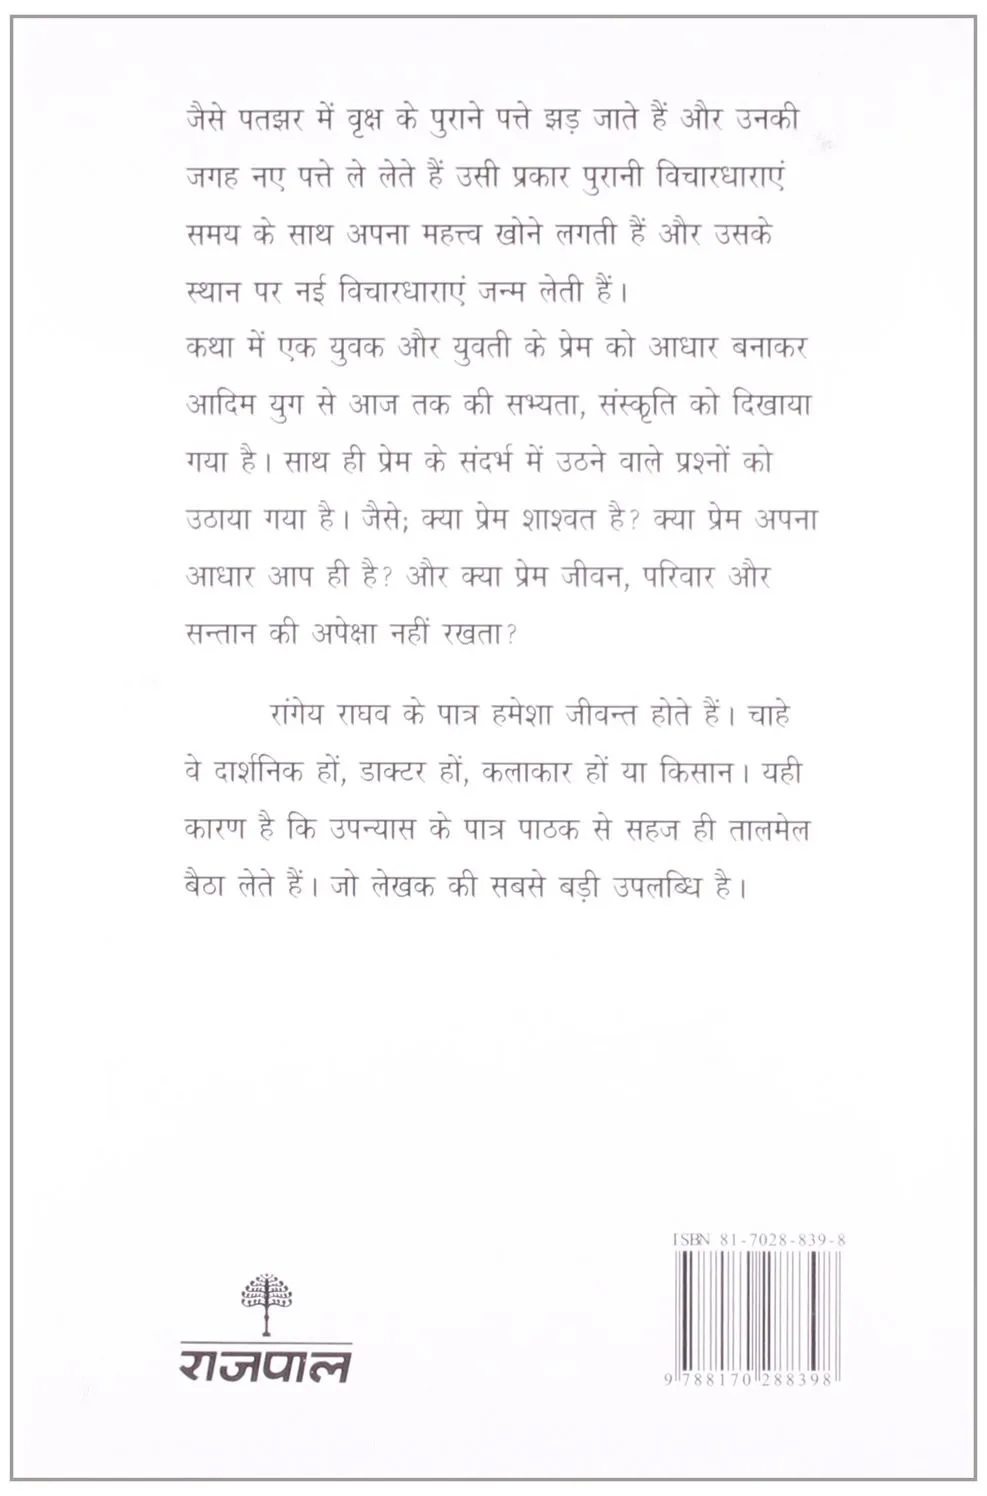 जैसे पतझर में वृक्ष के पुराने पत्ते झड़ जाते हैं और उनकी
जगह नए पत्ते ले लेते हैं उसी प्रकार पुरानी विचारधाराएं
समय के साथ अपना महत्त्व खोने लगती हैं और उसके
स्थान पर नई विचारधाराएं जन्म लेती हैं।
कथा में एक युवक और युवती के प्रेम को आधार बनाकर
आदिम युग से आज तक की सभ्यता, संस्कृति को दिखाया
गया है। साथ ही प्रेम के संदर्भ में उठने वाले प्रश्नों को
उठाया गया है। जैसे; क्या प्रेम शाश्वत है? क्या प्रेम अपना
आधार आप ही है? और क्या प्रेम जीवन, परिवार और
सन्तान की अपेक्षा नहीं रखता?
रांगेय राघव के पात्र हमेशा जीवन्त होते हैं। चाहे
वे दार्शनिक हों, डाक्टर हों, कलाकार हों या किसान। यही
कारण है कि उपन्यास के पात्र पाठक से सहज ही तालमेल
बैठा लेते हैं। जो लेखक की सबसे बड़ी उपलब्धि है।
ISBN 81-7028-839-8
राजपाल
9 788170 288398